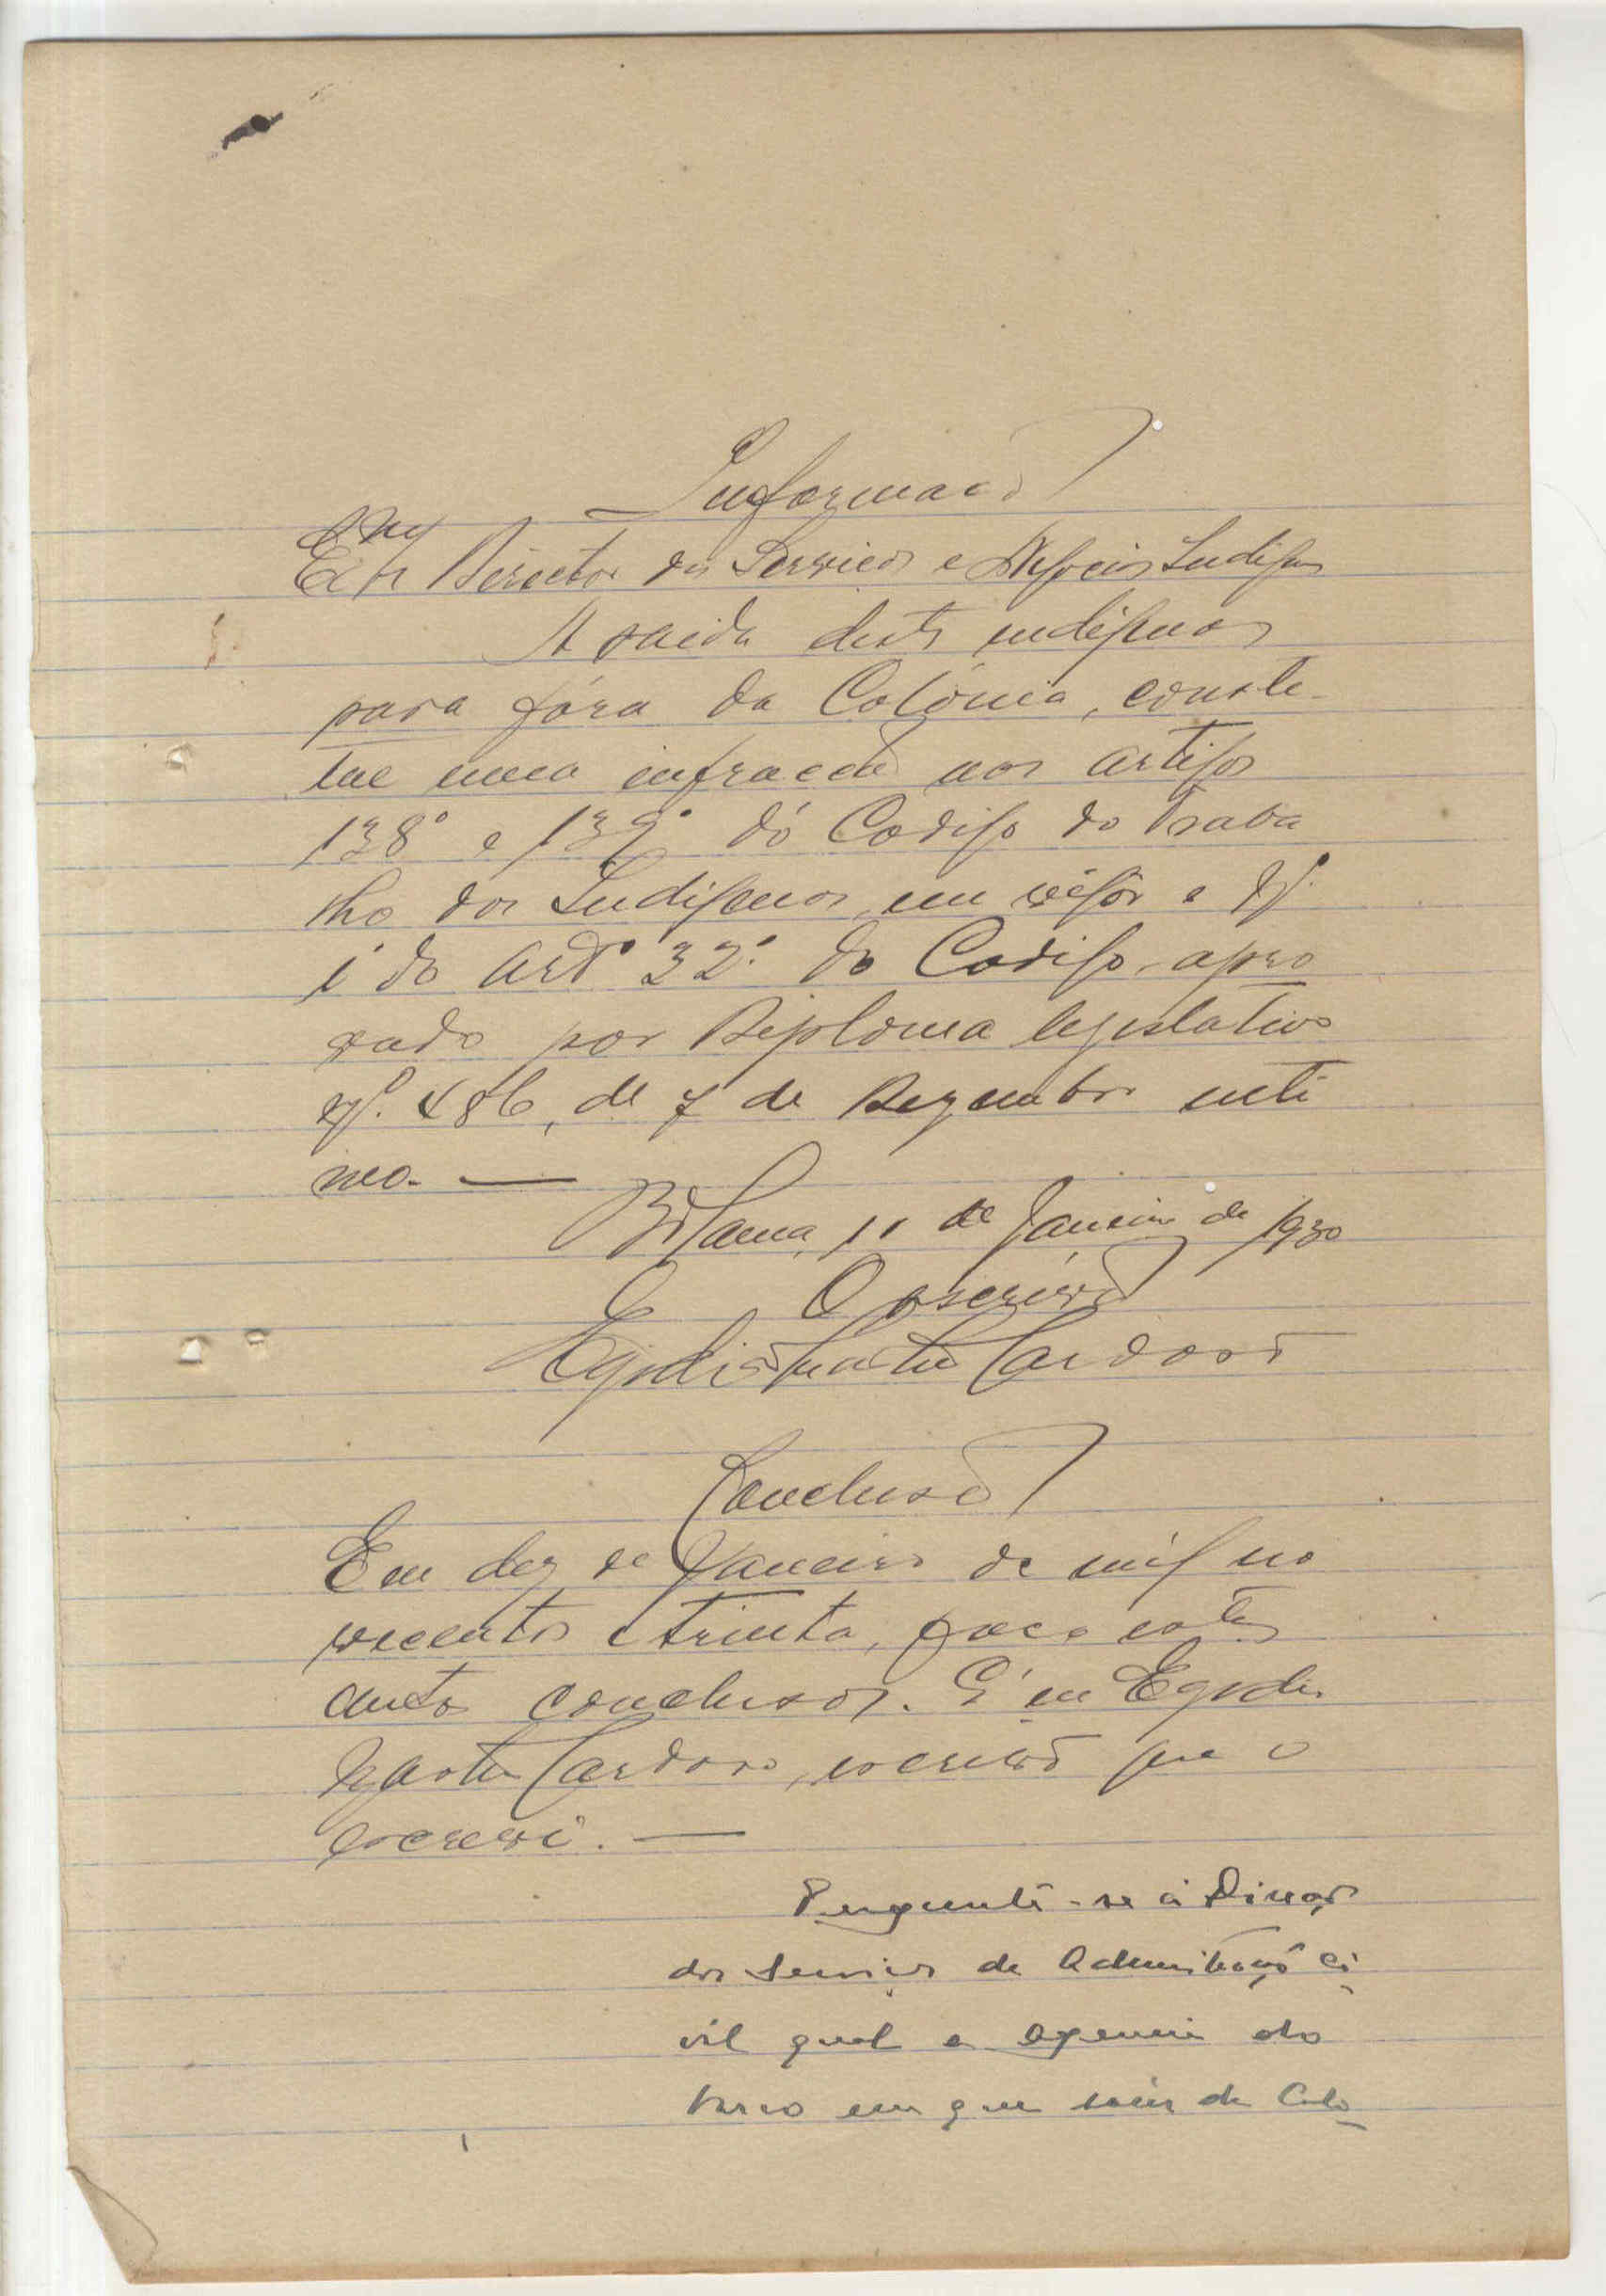 Informação
Exmº Director dos Serviços e Negocios Indigenas
A saida destes indigenas
para fóra da Colónia, consti-
tue uma infracção aos artigos
138º e 139º do Codigo do Traba
lho dos Indigenas em vigôr e Nº
1 do artº 32º do Codigo apro
vado por Diploma legislativo
Nº. 486, de 7 de Dezembro ulti
mo. —
Bolama, 10 de Janeiro de 1930
O escrivão
Cardoso
Conclusão
Em dez de Janeiro de mil no
vecentos e trinta, faço estes
autos conclusos. E eu
Cardoso, escrivão que o
escrevi. —
Pergunte-se á Direcção
dos Serviços de Administração Ci
vil qual a agencia do
barco em que saiu da Colo